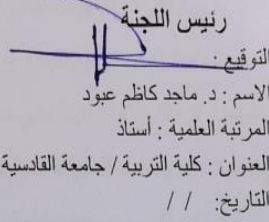 رئيس اللجنة
التوقيع :
الاسم : د. ماجد كاظم عبود
المرتبة العلمية : أستاذ
العنوان : كلية التربية / جامعة القادسية
التاريخ: / /